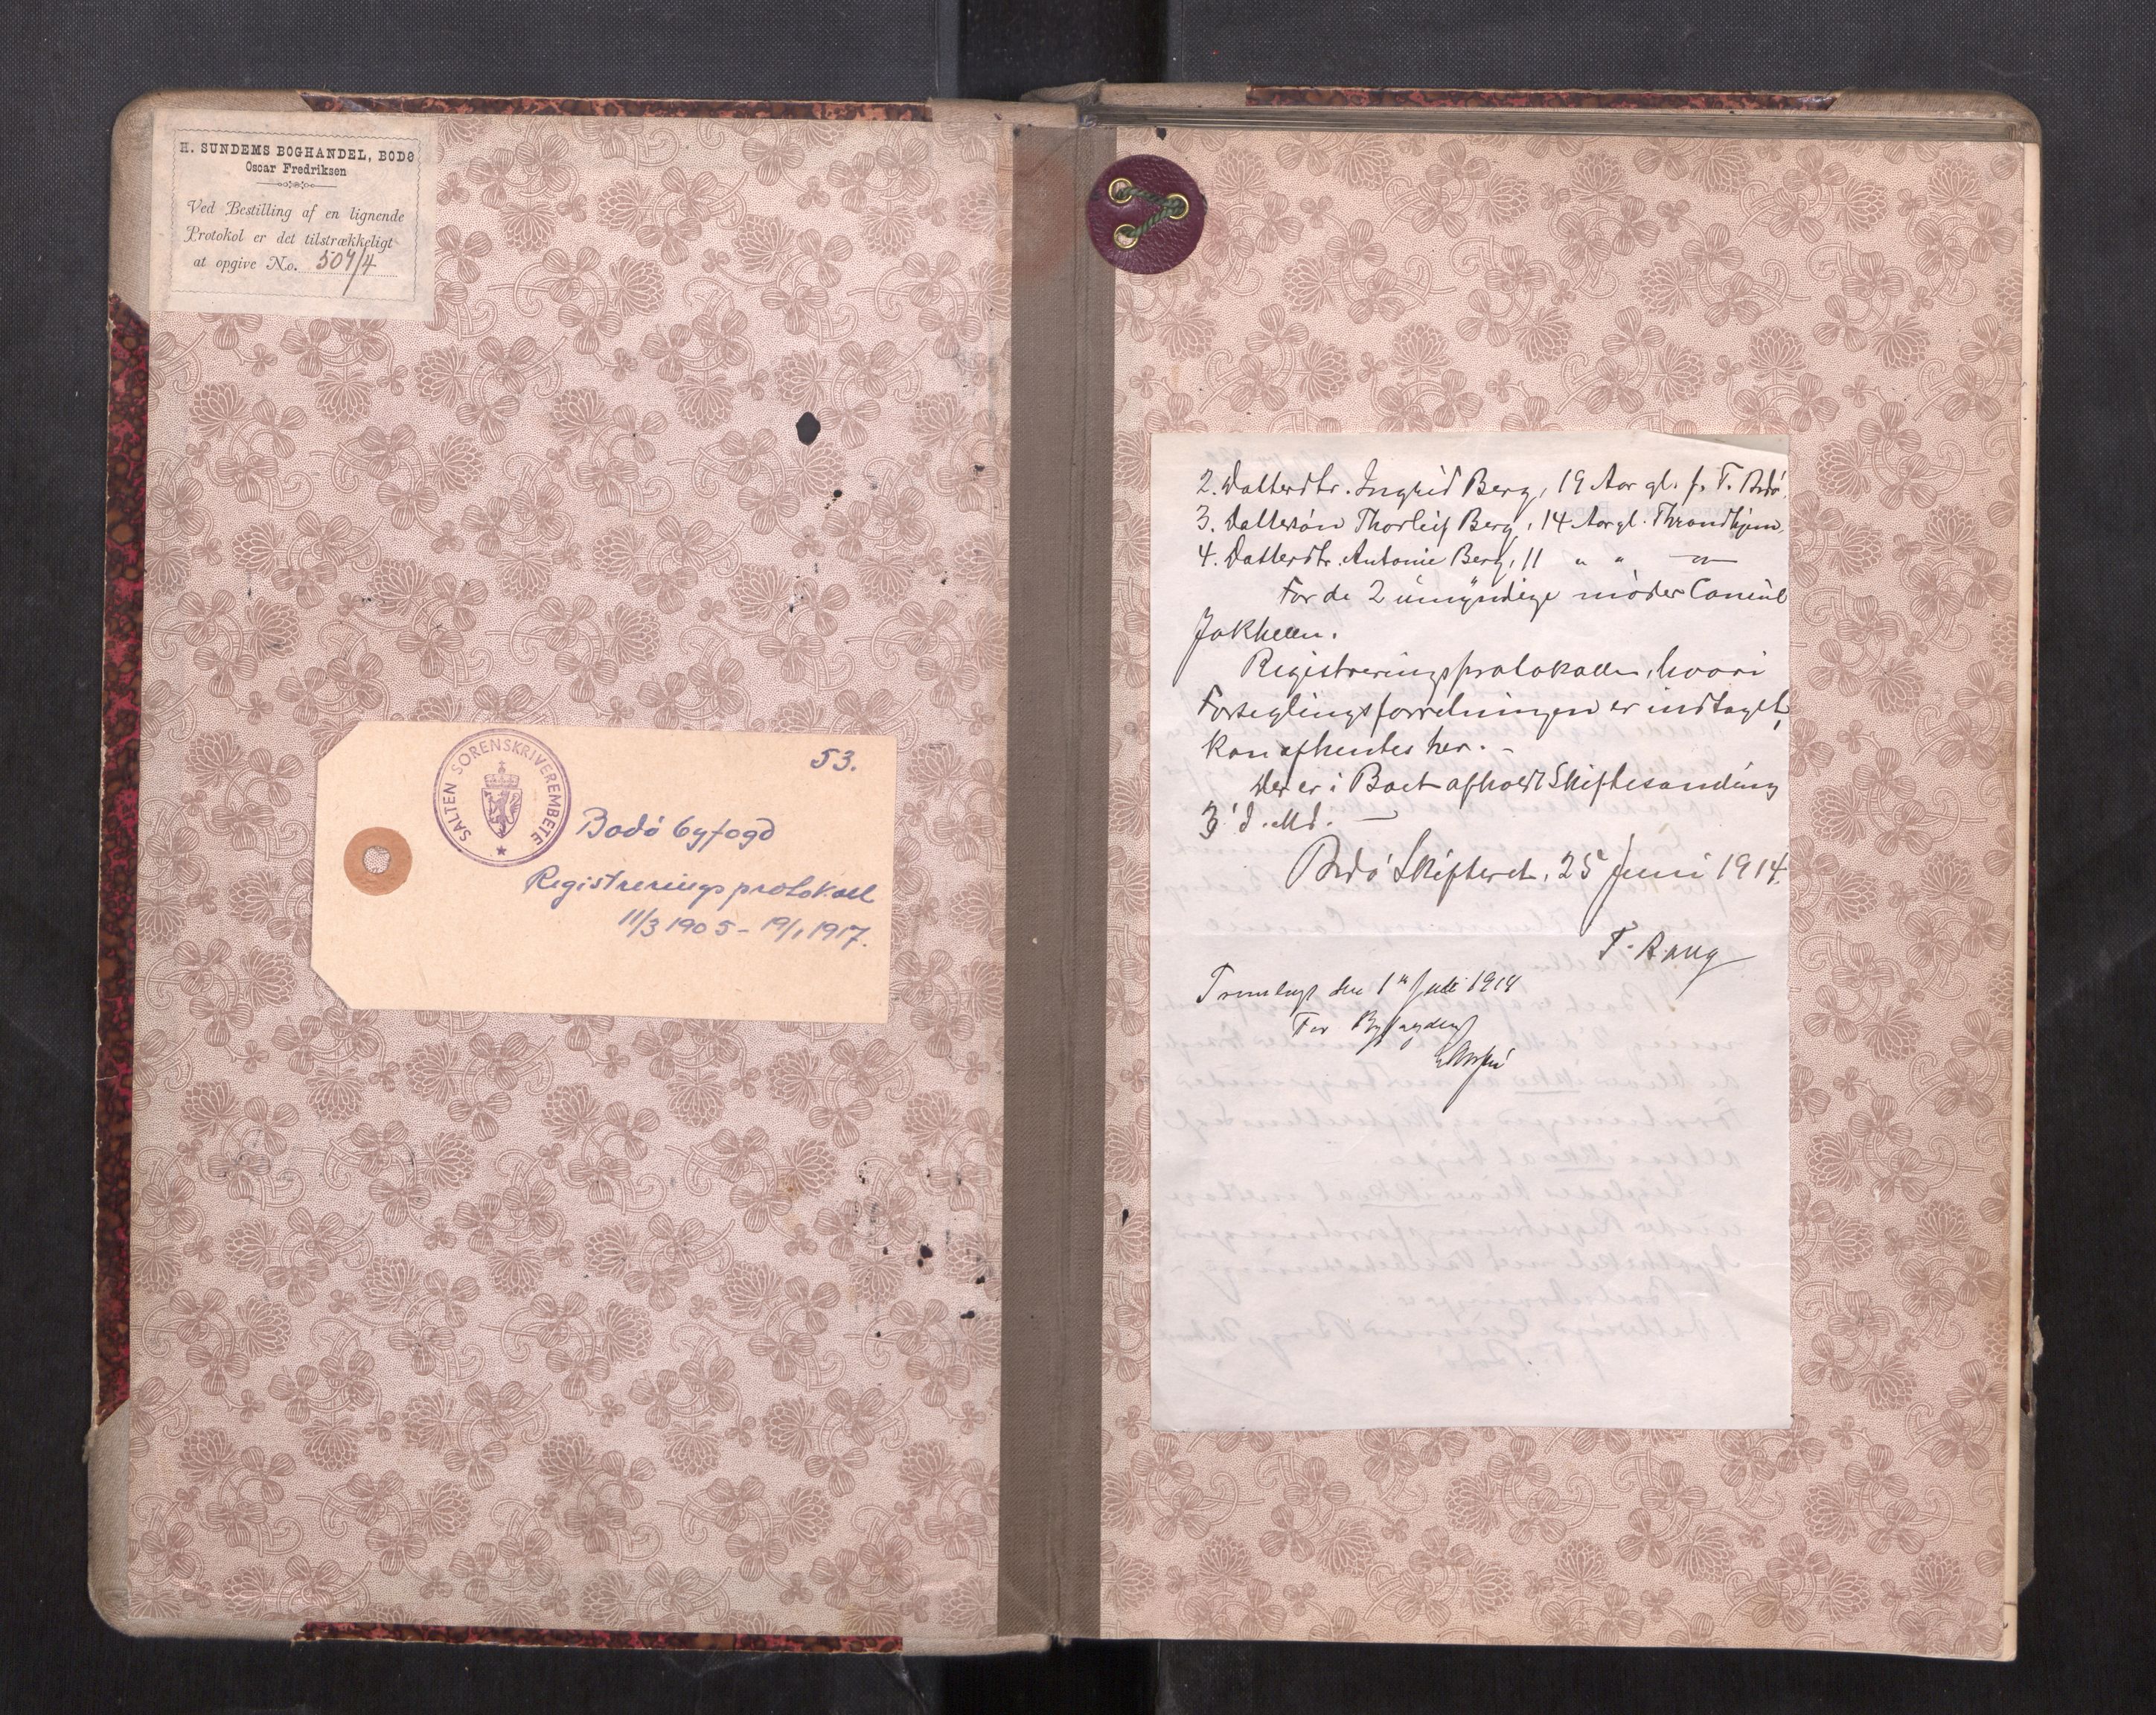 H. SUNDEMS BOGHANDEL, BODØ
Oscar Fredriksen
Ved Bestilling af en lignende
Protokol er det tilstrækkeligt
at opgive No. 504/4
53.
SALTEN SORENSKRIVEREMBETE
Bodö byfogd
Registreringsprotokoll
11/3 1905 - 19/1 1917.
2. Datterdtr. Ingrid Berg, 19 Aar gl. f. T. Bodö.
3. Dattersön Thorleif Berg, 14 Aar gl. Throndhjem,
4. Datterdtr. Antonie Berg, 11 " " —"—
For de 2 umyndige möder Consul
Jakhelln.
Registreringsprotokollen, hvori
Forseglingsforretningen er indtaget,
kan afhentes her. -
Der er i Boet afholdt Skiftesamling
3' d. Md. —
Bodö Skifteret, 25 Juni 1914.
T. Aang
den 1 Juli 1914
For Byfogden